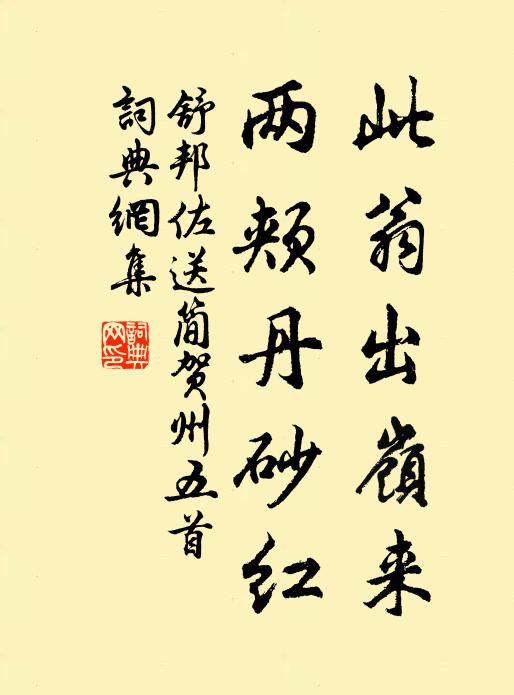 此翁出嶺来
两颊丹砂红
舒邦佐送简贺州五首
詞典網集
詞典网印